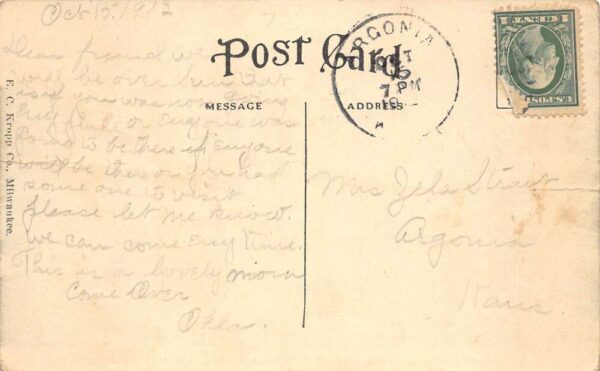 Oct 15, 1912
Post Card
MESSAGE
ADDRESS
E. C. Kropp Co., Milwaukee.
ARGONIA
OCT
7 PM
Dear friend we
will be over
if you was not going
any place or enyone was
going to be there if enyone
will be there or you had
some one to visit
please let me know.
we can come eny time.
This is a lovely morn
Come Over
Okla.
Mrs
Argonia
Kans.